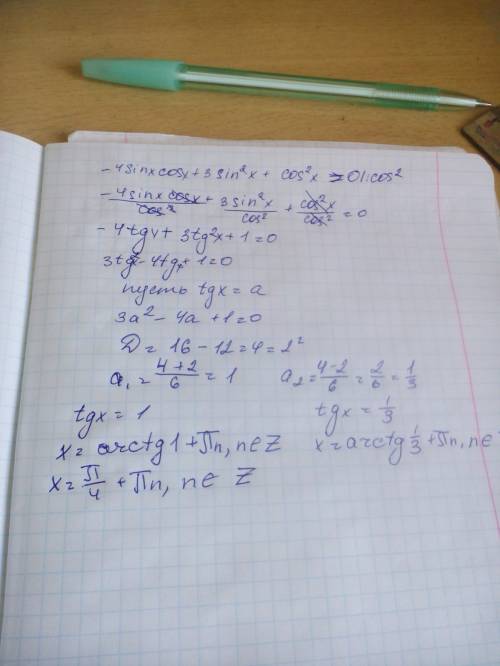 -4sinxcosx+3sin²x + cos²x =0|:cos²
-4sinx cosx/cos² + 3sin²x/cos² + cos²x/cos² =0
-4tgx+ 3tg²x+1=0
3tg²x-4tgx+1=0
пусть tgx = a
3a² - 4a +1=0
D = 16 - 12=4=2²
a₁ = 4+2/6 = 1 a₂ = 4-2/6 = 2/6 = 1/3
tgx = 1 tgx = 1/3
x = arctg1+πn, n∈Z x=arctg 1/3 +πn, n∈
x= π/4 + πn, n∈ Z